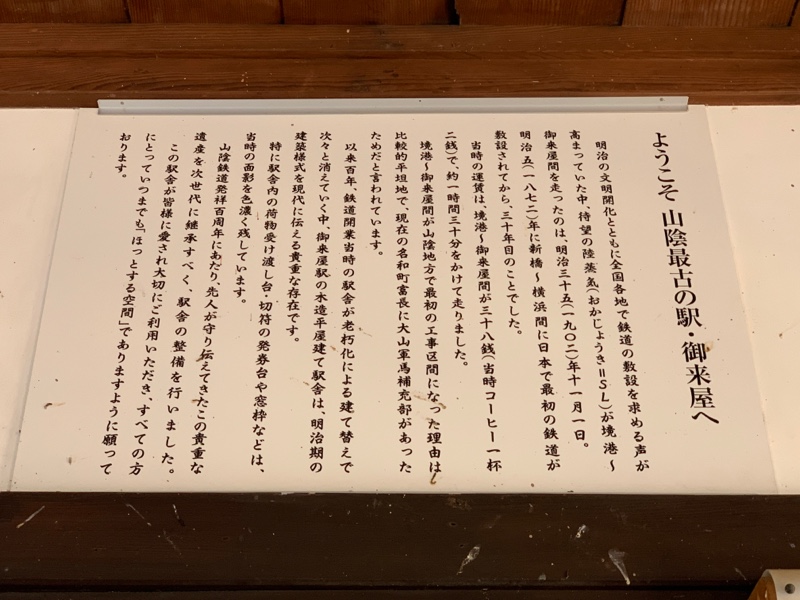 ようこそ 山陰最古の駅・御来屋へ
明治の文明開化とともに全国各地で鉄道の敷設を求める声が
高まっていた中、待望の陸蒸気(おかじょうき=SL)が境港～
御来屋間を走ったのは、明治三十五(一九〇二)年十一月一日。
明治五(一八七二)年に新橋～横浜間に日本で最初の鉄道が
敷設されてから、三十年目のことでした。
当時の運賃は、境港～御来屋間が三十八銭(当時コーヒー一杯
二銭)で、約一時間三十分をかけて走りました。
境港～御来屋間が山陰地方で最初の工事区間になった理由は、
比較的平坦地で、現在の名和町富長に大山軍馬補充部があった
ためだと言われています。
以来百年、鉄道開業当時の駅舎が老朽化による建て替えで
次々と消えていく中、御来屋駅の木造平屋建て駅舎は、明治期の
建築様式を現代に伝える貴重な存在です。
特に駅舎内の荷物受け渡し台・切符の発券台や窓枠などは、
当時の面影を色濃く残しています。
山陰鉄道発祥百周年にあたり、先人が守り伝えてきたこの貴重な
遺産を次世代に継承すべく、駅舎の整備を行いました。
この駅舎が皆様に愛され大切にご利用いただき、すべての方
にとっていつまでも「ほっとする空間」でありますように願って
おります。